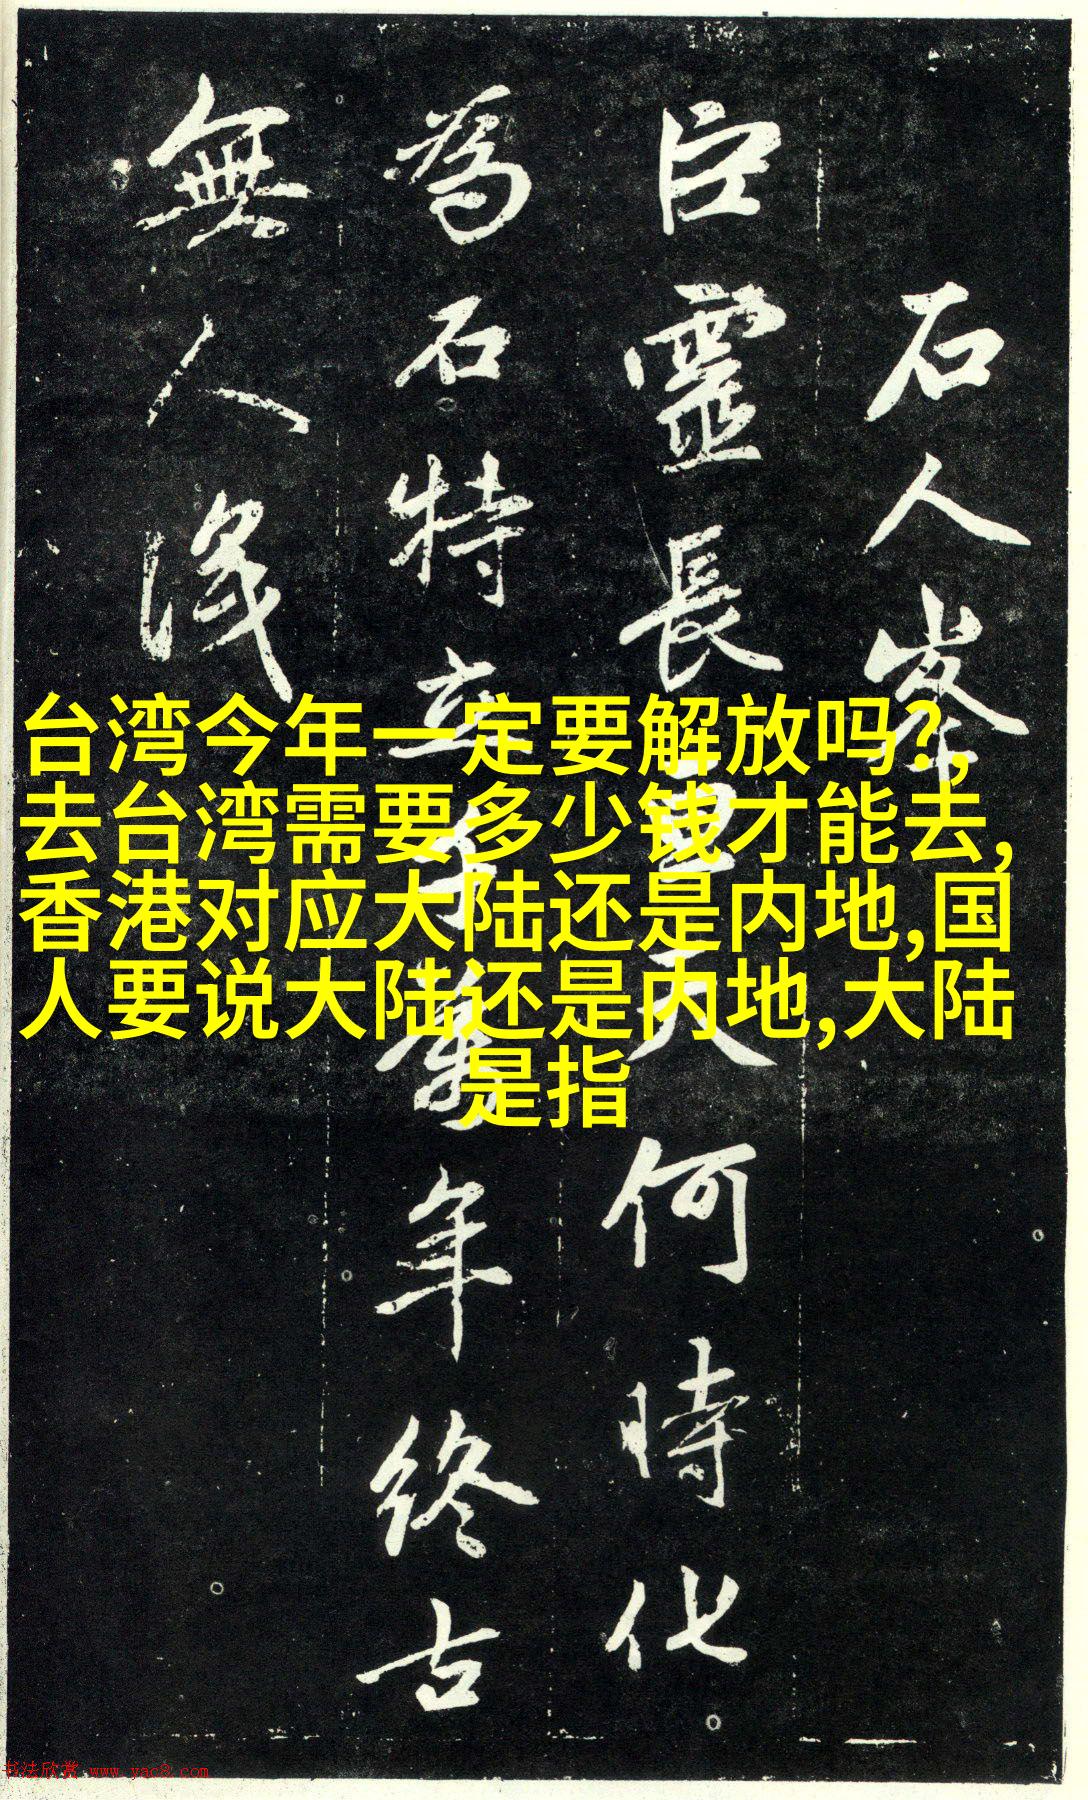 石人峯
巨靈長天何時化
為石特立萬年終古
無人識
台湾今年一定要解放吗?,
去台湾需要多少钱才能去,
香港对应大陆还是内地,国
人要说大陆还是内地,大陆
是指
书法欣赏 www.yac8.com